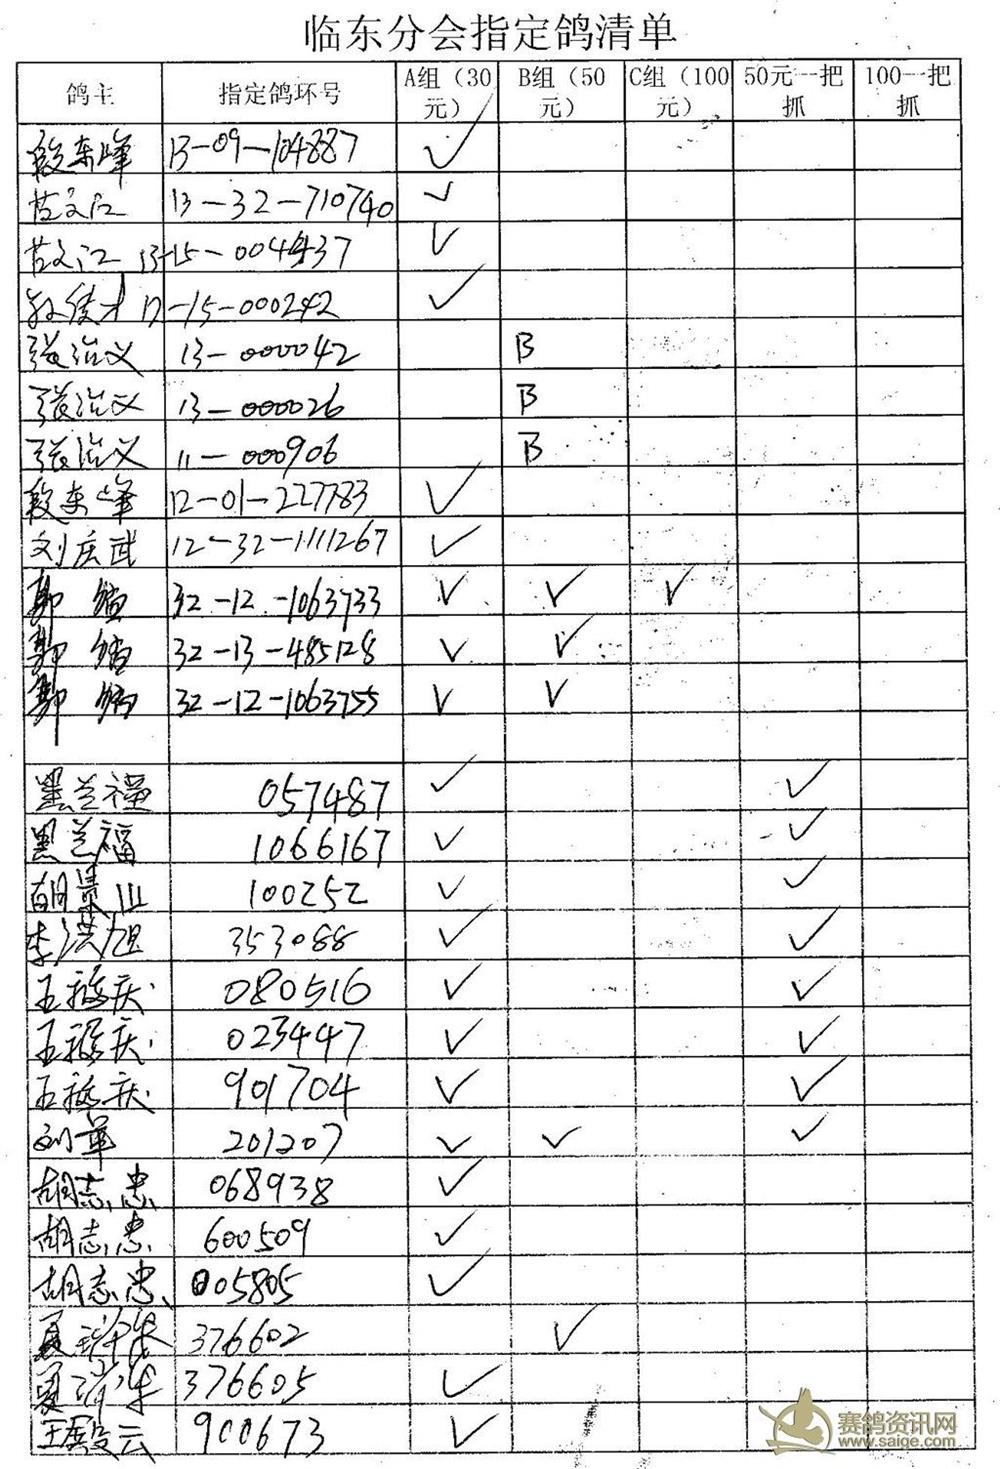 临东分会指定鸽清单
鸽主 指定鸽环号 A组（30元） B组（50元） C组（100元） 50元一把抓 100一把抓
段东峰 13-09-104887 ✓
苗文江 13-32-710740 ✓
苗文江 13-15-004937 ✓
12-15-000242 ✓
张治义 13-000042 B
张治义 13-000026 B
张治义 11-000906 B
段东峰 12-01-227783 ✓
刘庆武 12-32-1111267 ✓
郭 32-12-1063733 ✓ ✓ ✓
郭 32-13-485128 ✓ ✓
郭 32-12-1063755 ✓ ✓
黑兰福 057487 ✓ ✓
黑兰福 1066167 ✓ ✓
胡景山 100252 ✓ ✓
李洪旭 353088 ✓ ✓
王福庆 080516 ✓ ✓
王福庆 023447 ✓ ✓
王福庆 901704 ✓ ✓
刘革 201207 ✓ ✓ ✓
胡志忠 068938 ✓
胡志忠 600509 ✓
胡志忠 005805 ✓
夏 376602 ✓
夏 376605 ✓
王殿云 900673 ✓
赛鸽资讯网
www.saige.com